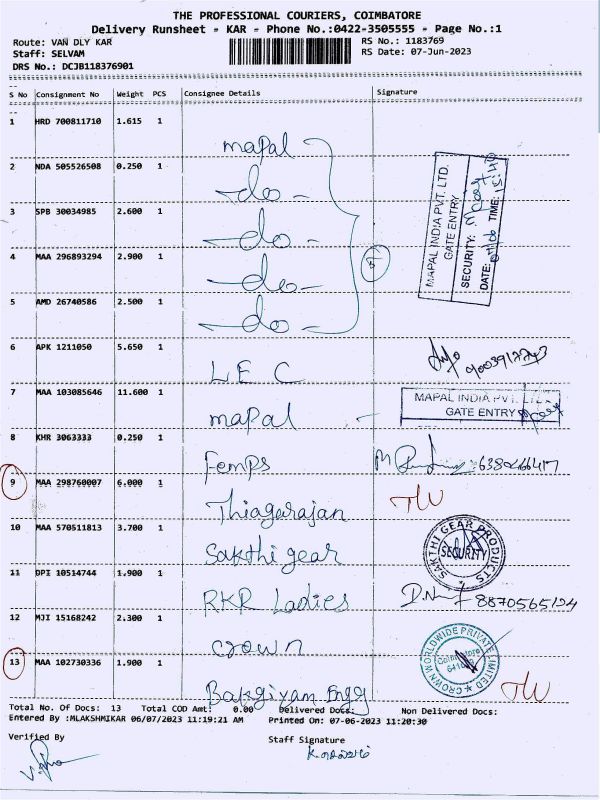 THE PROFESSIONAL COURIERS, COIMBATORE
Delivery Runsheet - KAR - Phone No.:0422-3505555 - Page No.:1
Route: VAN DLY KAR
RS No.: 1183769
Staff: SELVAM
RS Date: 07-Jun-2023
DRS No.: DCJB118376901
S No Consignment No Weight PCS Consignee Details Signature
1 HRD 700811710 1.615 1
mapal
2 NDA 505526508 0.250 1
-do-
3 SPB 30034985 2.600 1
-do-
4 MAA 296893294 2.900 1
-do-
5 AMD 26740586 2.500 1
-do-
5
MAPAL INDIA PVT. LTD.
GATE ENTRY
SECURITY:
DATE: TIME:
6 APK 1211050 5.650 1
L E C
7 MAA 103085646 11.600 1
mapal
MAPAL INDIA PVT. LTD.
GATE ENTRY
8 KHR 3063333 0.250 1
Femps
9 MAA 298760007 6.000 1
Thiagarajan
10 MAA 570511813 3.700 1
Sakthi gear
SAKTHI GEAR PRODUCTS
SECURITY
11 DPI 10514744 1.900 1
RKR Ladies
12 MJI 15168242 2.300 1
crown
CROWN WORLDWIDE PRIVATE LIMITED
13 MAA 102730336 1.900 1
Bakgiyam Engg
Total No. Of Docs: 13 Total COD Amt: 0.00 Delivered Docs: Non Delivered Docs:
Entered By :MLAKSHMIKAR 06/07/2023 11:19:21 AM Printed On: 07-06-2023 11:20:30
Verified By
Staff Signature